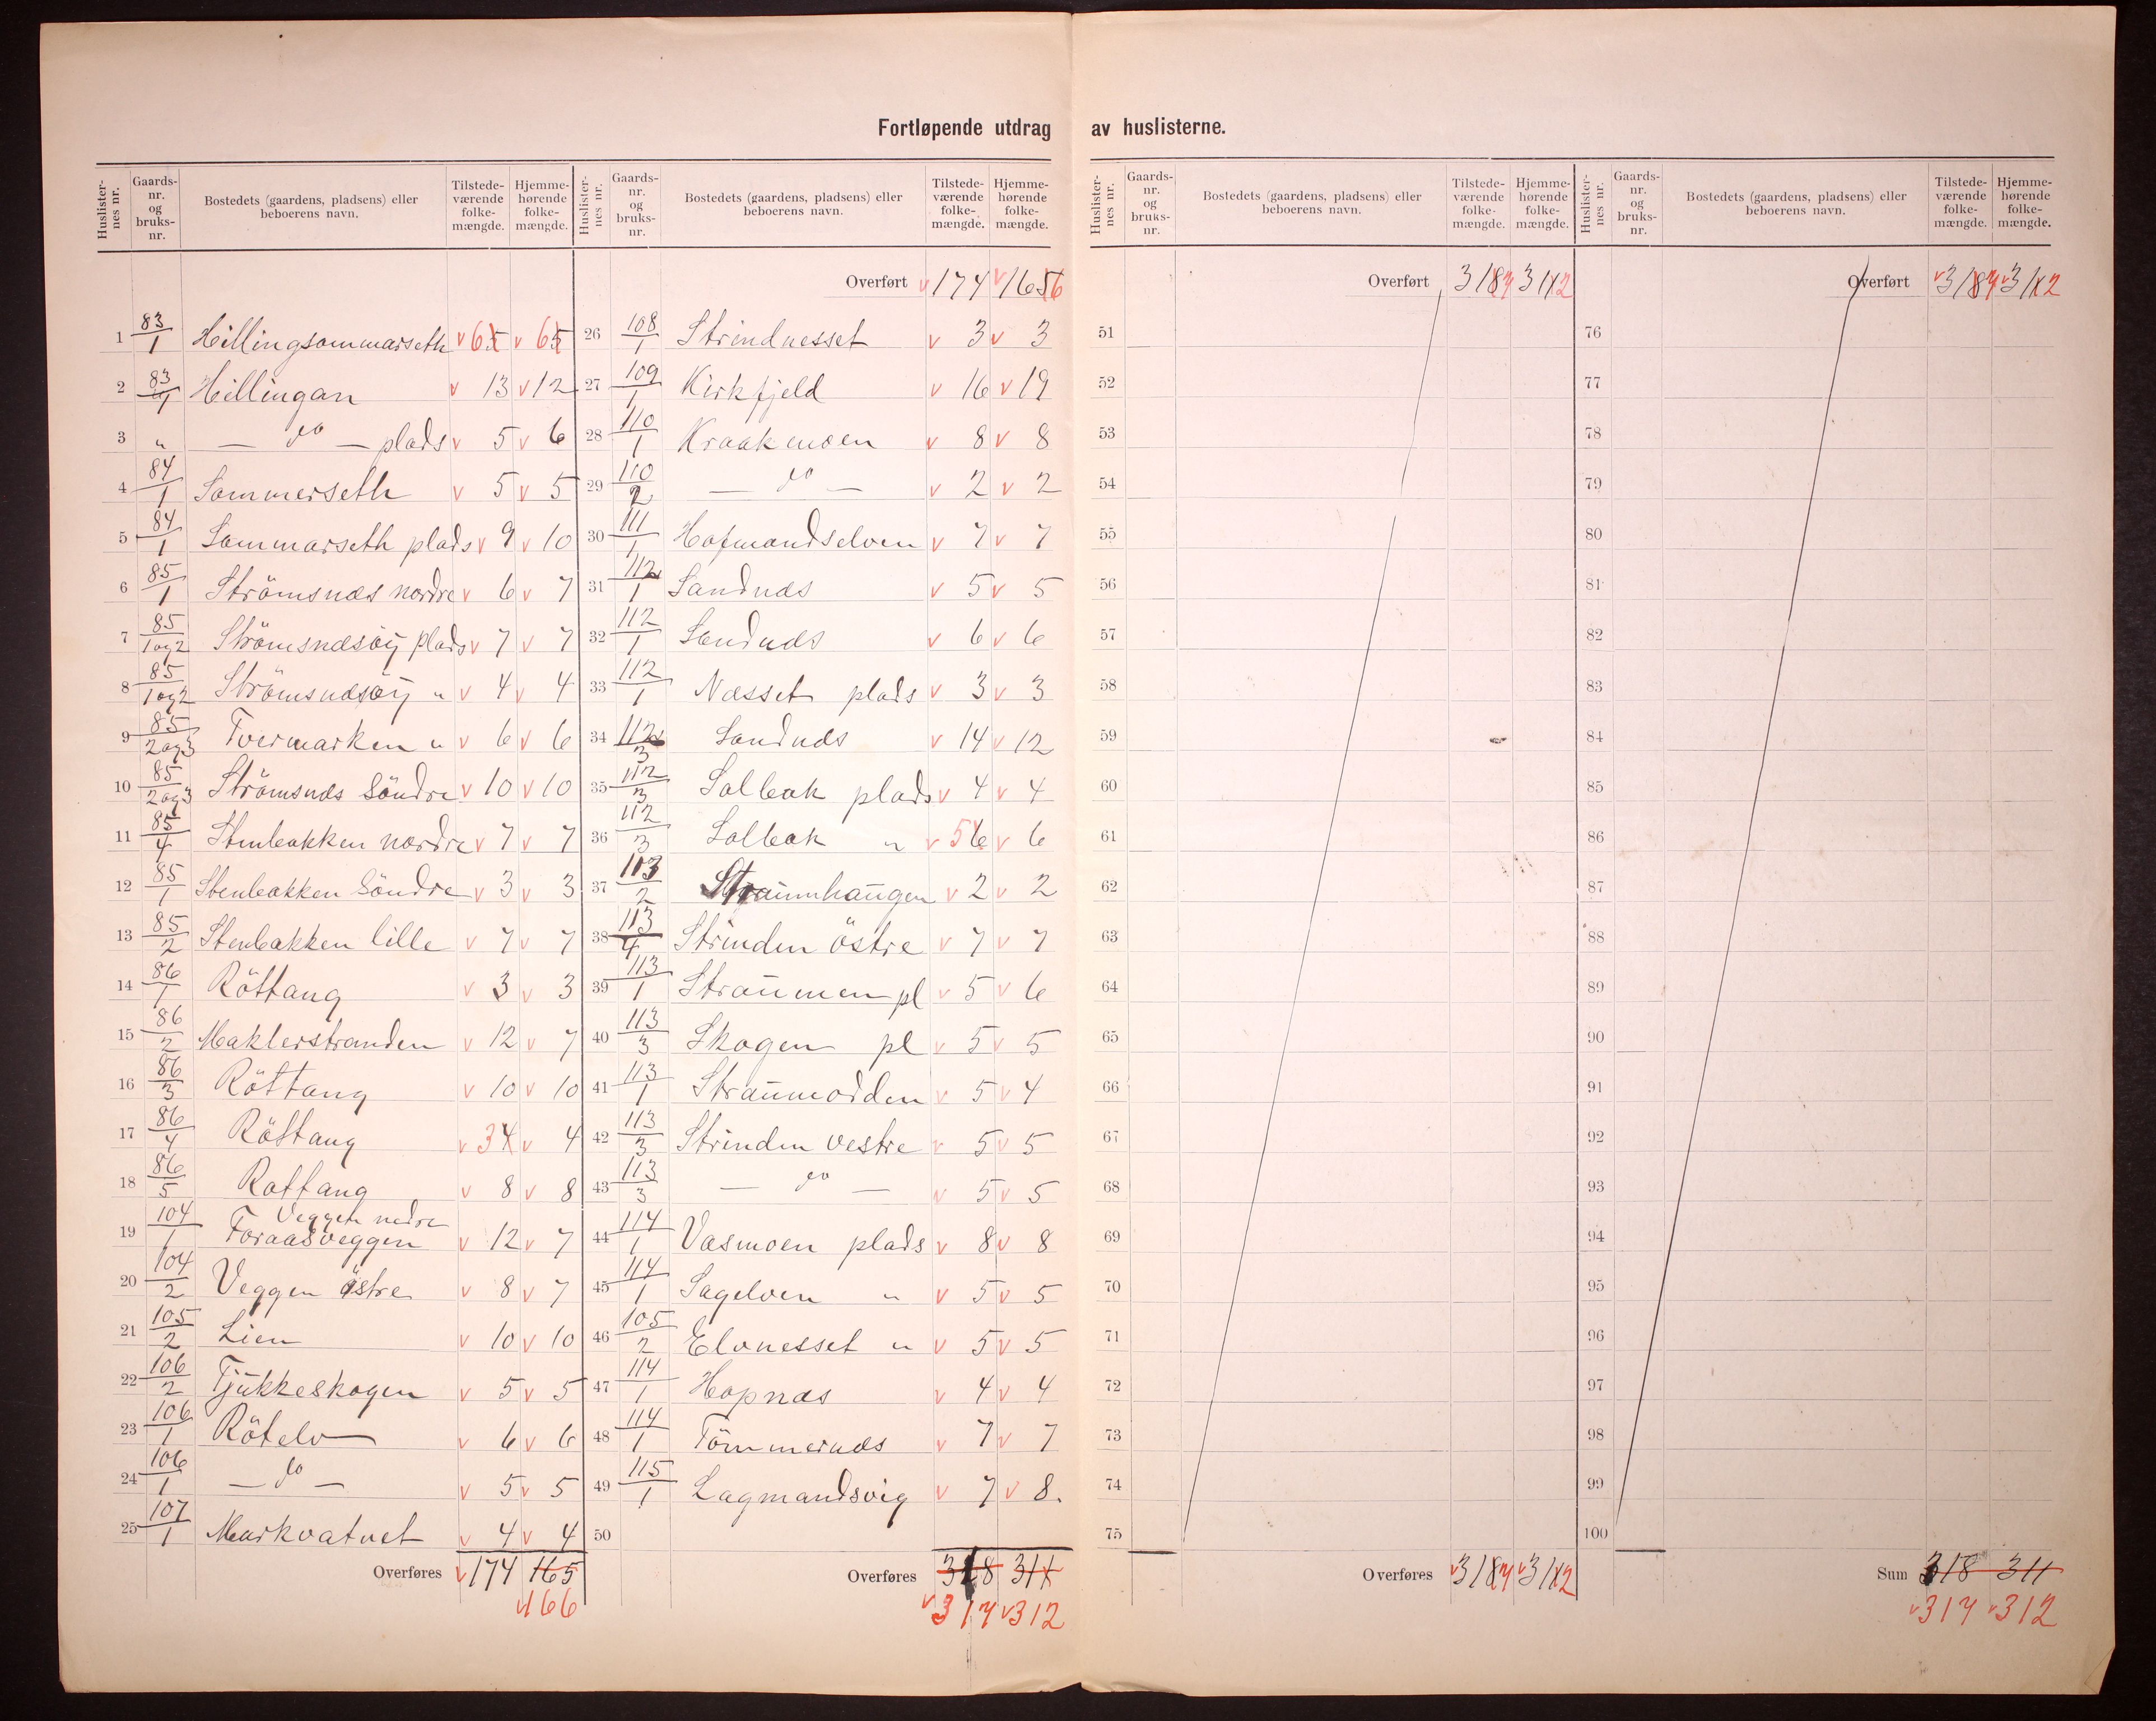 Fortløpende utdrag av huslisterne.
Huslisternes nr. | Gaards-nr. og bruks-nr. | Bostedets (gaardens, pladsens) eller beboerens navn. | Tilstede-værende folke-mængde. | Hjemme-hørende folke-mængde.
1 83/1 Hillingsommarseth 6 6
2 83/1 Hillingan 13 12
3 " — do — plads 5 6
4 84/1 Sommerseth 5 5
5 84/1 Sommarseth plads 9 10
6 85/1 Strömsnæs nordre 6 7
7 85/1og2 Strömsnæsöij plads 7 7
8 85/1og2 Strömsnæsöij " 4 4
9 85/2og3 Tvermarken " 6 6
10 85/2og3 Strömsnæs Söndre 10 10
11 85/4 Stenbakken nordre 7 7
12 85/1 Stenbakken Söndre 3 3
13 85/2 Stenbakken lille 7 7
14 86/1 Röttang 3 3
15 86/2 Maklerstranden 12 7
16 86/3 Röttang 10 10
17 86/4 Röttang 3 4 4
18 86/5 Rottang 8 8
19 104/1 Veggen nedre
Foraasveggen 12 7
20 104/2 Veggen östre 8 7
21 105/2 Lien 10 10
22 106/2 Tjukkeskogen 5 5
23 106/1 Rötelv 6 6
24 106/1 — do — 5 5
25 107/1 Markvatnet 4 4
Overføres 174 165
166
Huslisternes nr. | Gaards-nr. og bruks-nr. | Bostedets (gaardens, pladsens) eller beboerens navn. | Tilstede-værende folke-mængde. | Hjemme-hørende folke-mængde.
Overført 174 165 6
26 108/1 Strindnesset 3 3
27 109/1 Kirkfjeld 16 19
28 110/1 Kraakmoen 8 8
29 110/2 — do — 2 2
30 111/1 Hofmandselven 7 7
31 112/1 Sandnæs 5 5
32 112/1 Sandnæs 6 6
33 112/1 Næsset plads 3 3
34 112/3 Sandnæs 14 12
35 112/3 Solbak plads 4 4
36 112/3 Solbak " 5 6 6
37 113/2 Straumhaugen 2 2
38 113/4 Strinden östre 7 7
39 113/1 Straumen pl 5 6
40 113/3 Skogen pl 5 5
41 113/1 Straumodden 5 4
42 113/3 Strinden vestre 5 5
43 113/3 — do — 5 5
44 114/1 Vasmoen plads 8 8
45 114/1 Sagelven " 5 5
46 105/2 Elvnesset " 5 5
47 114/1 Hopnæs 4 4
48 114/1 Tömmernæs 7 7
49 115/1 Lagmandsvig 7 8.
50
Overføres 318 311
317 312
Huslisternes nr. | Gaards-nr. og bruks-nr. | Bostedets (gaardens, pladsens) eller beboerens navn. | Tilstede-værende folke-mængde. | Hjemme-hørende folke-mængde.
Overført 318 7 311 2
51
52
53
54
55
56
57
58
59
60
61
62
63
64
65
66
67
68
69
70
71
72
73
74
75
Overføres 318 7 311 2
Huslisternes nr. | Gaards-nr. og bruks-nr. | Bostedets (gaardens, pladsens) eller beboerens navn. | Tilstede-værende folke-mængde. | Hjemme-hørende folke-mængde.
Overført 318 7 311 2
76
77
78
79
80
81
82
83
84
85
86
87
88
89
90
91
92
93
94
95
96
97
98
99
100
Sum 318 311
317 312